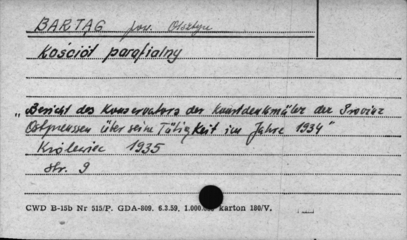 BARTĄG pow. Olsztyn
Kościół parafialny
"Bericht des Konservators der Kunstdenkmäler der Provinz
Ostpreussen über seine Tätigkeit im Jahre 1934"
Królewiec 1935
str. 9
CWD B-15b Nr 515/P. GDA-809. 6.3.59, 1.000.000 karton 180/V.